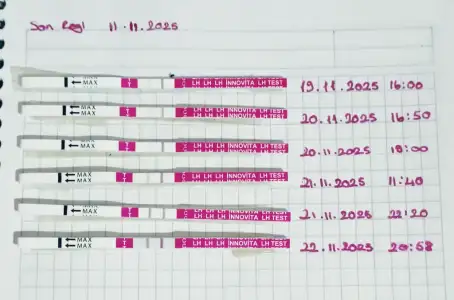 Son Regl 11.11.2025
MAX LH LH LH INNOVITA LH TEST 19.11.2025 16:00
MAX MAX LH LH LH INNOVITA LH TEST 20.11.2025 16:50
MAX LH LH LH INNOVITA LH TEST 20.11.2025 19:00
MAX MAX LH LH LH INNOVITA LH TEST 21.11.2025 11:40
MAX LH LH LH INNOVITA LH TEST 21.11.2025 22:20
MAX MAX LH LH LH INNOVITA LH TEST 22.11.2025 20:58